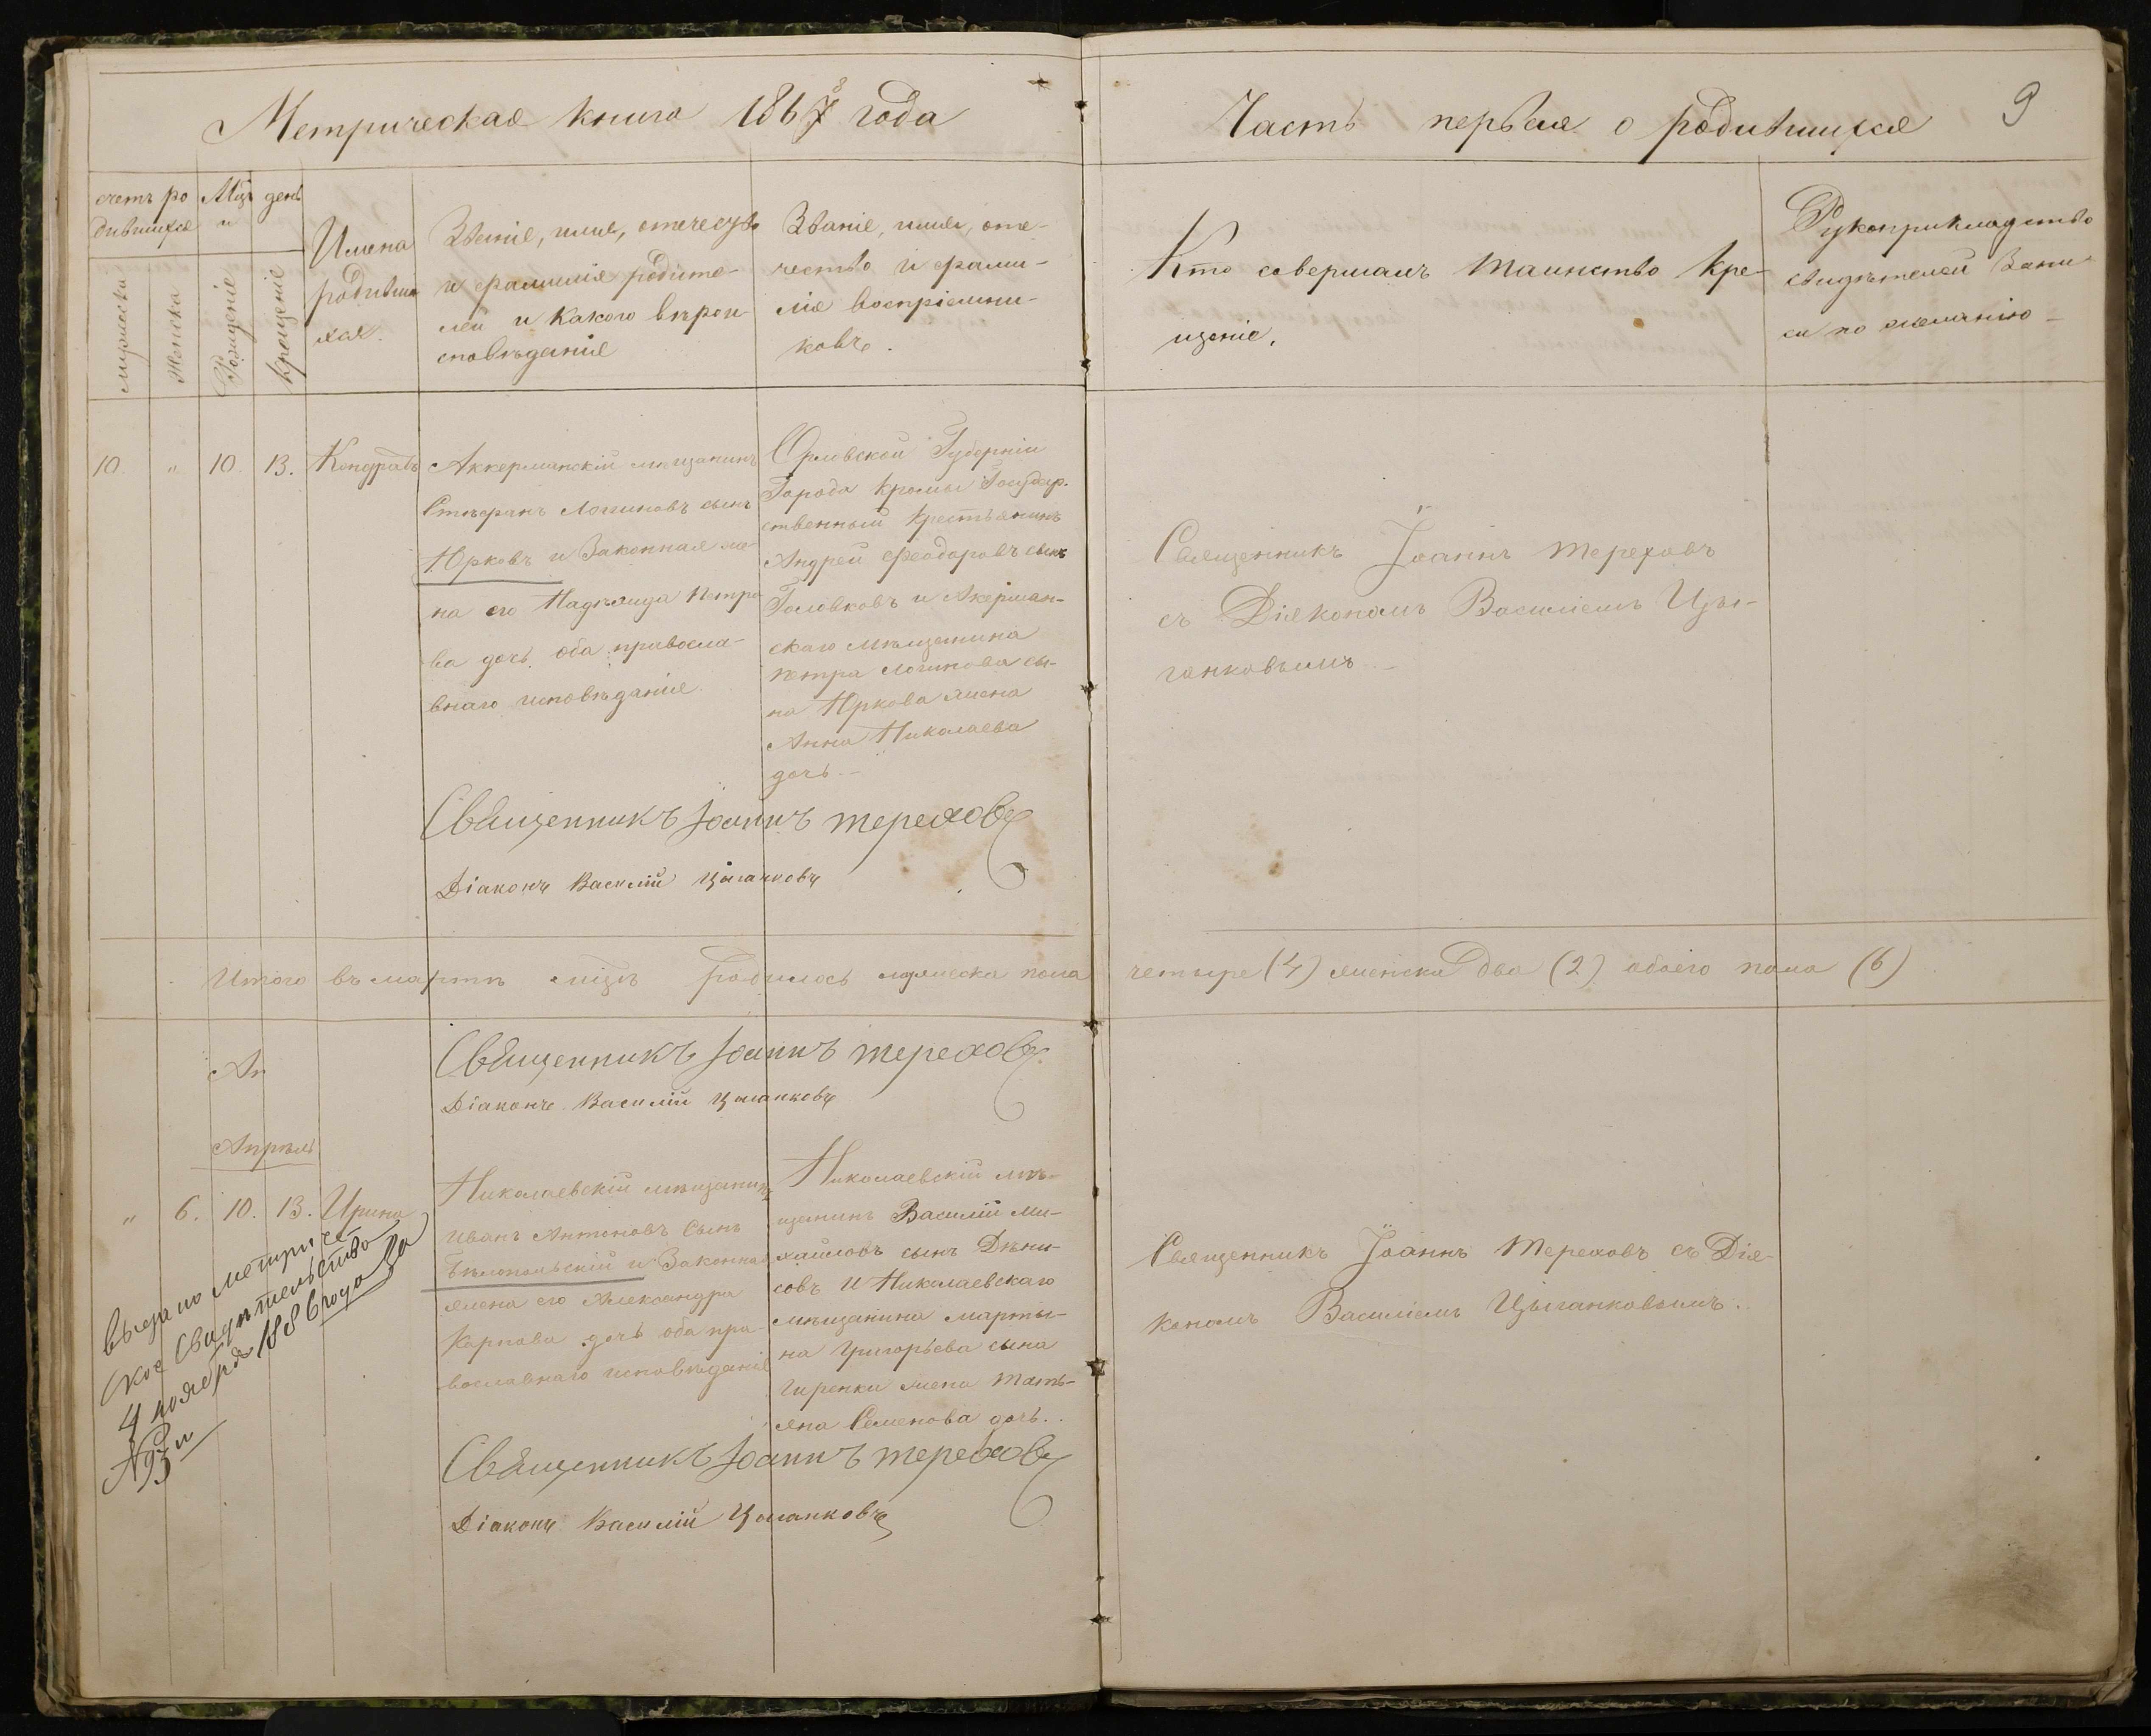 Метрическая книга 1867 8 года
Часть первая о родившихся
9
счетъ ро
дившихся
Мцъ
и
день
мужеска
Женска
Рожденіе
крещеніе
Имена
родивши
хся.
Званіе, имя, отечество
и фамилія родите-
лей и Какого вѣрои
сповѣданія
Званіе, имя, оте-
чество и фами-
лія воспріемни-
ковъ.
Кто совершалъ Таинство Кре-
щенія,
Рукоприкладство
свидѣтелей Запи
си по желанію
10. " 10. 13. Кондратъ
Аккерманскій мѣщанинъ
Стефанъ Логиновъ сынъ
Юрковъ и Законная же
на его Надежда Петро
ва дочь оба правосла-
внаго исповѣданія.
Орловской Губерніи
Города Кромы Государ.
ственный крестьянинъ
Андрей Феодоровъ сынъ
Головковъ и Акерман-
скаго мѣщанина
петра Логинова сы-
на Юркова жена
Анна Николаева
дочь.
Священникъ Іоаннъ Тереховъ
съ Діякономъ Василіемъ Цы-
ганковымъ
Священникъ Іоаннъ Тереховъ
Діаконъ Василій Цыганковъ
Итого въ мартѣ мцѣ родилось мужеска пола четыре (4) женска два (2) обоего пола (6)
Священникъ Іоаннъ Тереховъ
Діаконъ Василій Цыганковъ
Ап
Апрѣль
" 6. 10. 13. Ирина
Николаевскій мѣщанинъ
Иванъ Антоновъ Сынъ
Бѣлопольскій и Законная
жена его Александра
Карпова дочь оба пра-
вославнаго исповѣданія
Николаевскій мѣ-
щанинъ Василій Ми-
хайловъ сынъ Дѣни-
совъ И Николаевскаго
мѣщанина марты-
на Григорьева сына
Гиренки жена Тать-
яна Семенова дочь..
Священникъ Іоаннъ Тереховъ съ Дія-
кономъ Василіемъ Цыганковымъ.
выдано метриче
ское свидѣтельство
4 ноября 1886 года За
№ 3
Священникъ Іоаннъ Тереховъ
Діаконъ Василій Цыганковъ